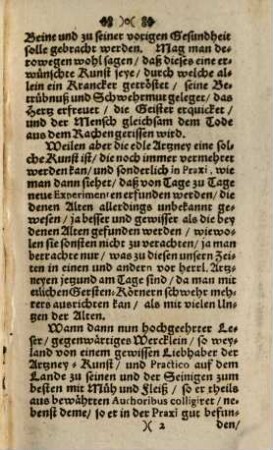 Beine und zu seiner vorigen Gesundheit
solle gebracht werden. Mag man de-
rowegen wohl sagen/ daß dieses eine er-
wünschte Kunst seye/ durch welche al-
lein ein Krancker getröstet/ seine Be-
trübnuß und Schwehrmut geleget/ das
Hertz erfreuet/ die Geister erquicket/
und der Mensch gleichsam dem Tode
aus dem Rachen gerissen wird.
Weilen aber die edle Artzney eine sol-
che Kunst ist/ die noch immer vermehret
werden kan/ und sonderlich in Praxi, wie
man dann siehet/ daß von Tage zu Tage
neue Experimenten erfunden werden/ die
denen Alten allerdings unbekannt ge-
wesen/ ja besser und gewisser als die bey
denen Alten gefunden werden/ wiewo-
len sie sonsten nicht zu verachten/ ja man
betrachte nur/ was zu diesen unsern Zei-
ten in einen und andern vor herrl. Artz-
neyen jetzund am Tage sind/ da man mit
etlichen Gersten-Körnern schwehr meh-
rers ausrichten kan/ als mit vielen Un-
gen der Alten.
Wann dann nun hochgeehrter Le-
ser/ gegenwärtiges Wercklein/ so wey-
land von einem gewissen Liebhaber der
Artzney-Kunst/ und Practico auf dem
Lande zu seinen und der Seinigen zum
besten mit Müh und Fleiß/ so er theils
aus bewährten Authoribus colligiret/ ne-
benst deme/ so er in der Praxi gut befun-
)( 2 den/